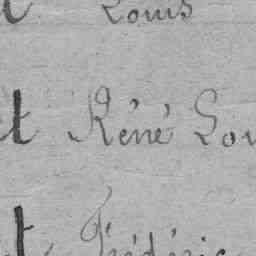 Louis
t René Lou
t Frédéric